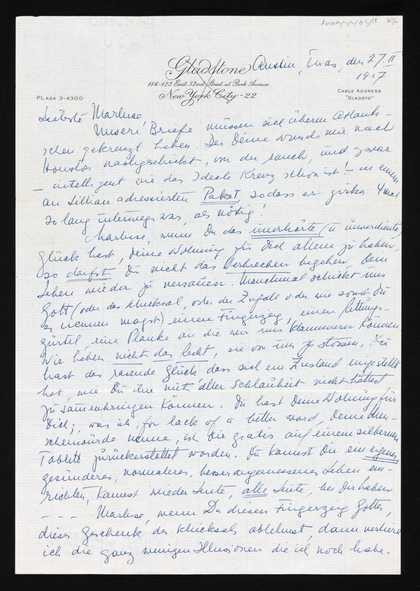 Gladstone
114-122 East 52nd Street at Park Avenue
New York City-22
PLAZA 3-4300
CABLE ADDRESS
"GLADSTO"
Austin, Texas, den 27. II
Liebste Marluse,
Unsere Briefe müssen sich überm
gekreuzt haben. Der Deine wurde mir nach
Houston nachgeschickt, von da zurück, und zwar
– intelligent wie das Ideale Kreuz schon ist! – in einem
an Lillian adressierten Paket, sodass er gute 4 mal
so lang unterwegs war, als nötig!
Marluse, wenn Du das unerhörte, unverdiente
Glück hast, Deine Wohnung für Dich allein zu haben,
so darfst Du nicht das Verbrechen begehen, dein
Leben wieder zu versauen. Manchmal schickt uns
Gott (oder das Schicksal, oder der Zufall oder wie sonst Du
es nennen magst) einen Fingerzeig, einen Rettungs-
gürtel, eine Planke an die wir uns klammern können.
Wir haben nicht das Recht, sie von uns zu stossen. Du
hast das rasende Glück dass sich ein Zustand eingestellt
hat, wie Du ihn mit aller Schlauheit nicht hättest
zusammenbringen können. Du hast Deine Wohnung für
Dich; was ich, for lack of a better word, Deine Men-
schenwürde nenne, ist Dir gratis auf einem silbernen
Tablett zurückerstattet worden. Du kannst Dir ein eigenes
gesünderes, normaleres, besser angemessenes Leben ein-
richten, kannst wieder Leute, alle Leute, bei Dir haben
- - - - Marluse, wenn Du diesen Fingerzeig Gottes,
dieses Geschenk des Schicksals ablehnst, dann verliere
ich die ganz wenigen Illusionen die ich noch habe.